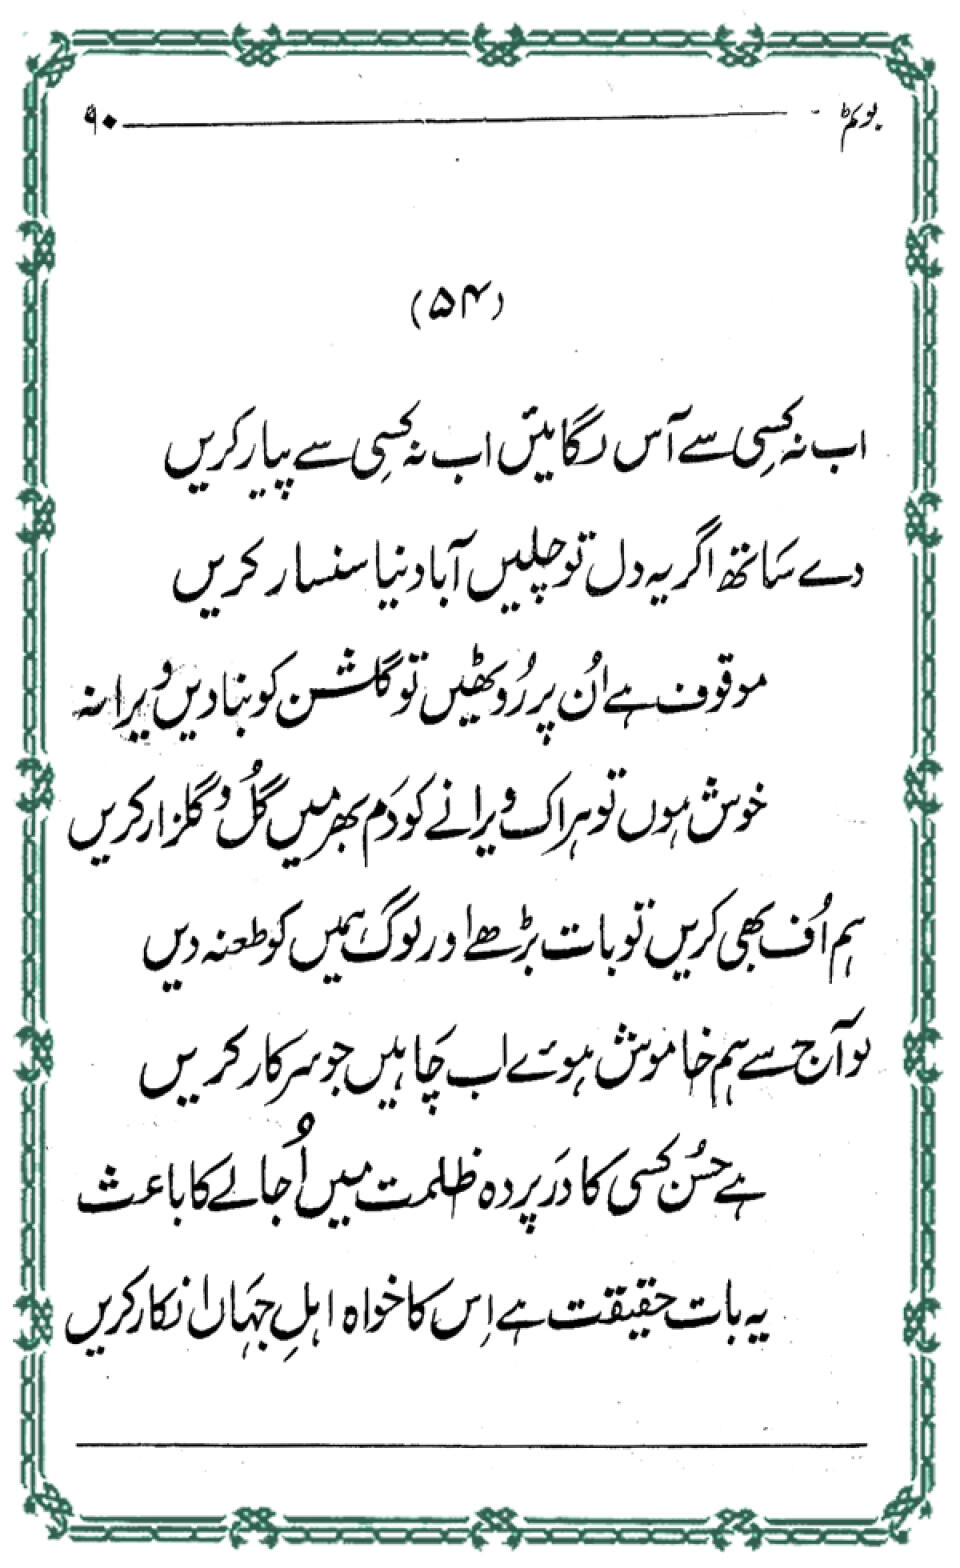 ۹۰
(۵۴)
اب نہ کسِی سے آس لگائیں اب نہ کسِی سے پیار کریں
دے سَاتھ اگر یہ دل تو چلیں آباد نیا سنسار کریں
موقوف ہے اُن پر رُوٹھیں تو گلشن کو بنا دیں ویرانہ
خوش ہوں تو ہر اک ویرانے کو دَم بھر میں گلُ و گلزار کریں
ہم اُف بھی کریں تو بات بڑھے اور لوگ ہمیں کو طعنہ دیں
لو آج سے ہم خاموش ہوئے اب چَاہیں جو سرکار کریں
ہے حسُن کسی کا دَر پردہ ظلمت میں اُجالے کا باعث
یہ بات حقیقت ہے اِس کا خواہ اہلِ جہَاں انکار کریں